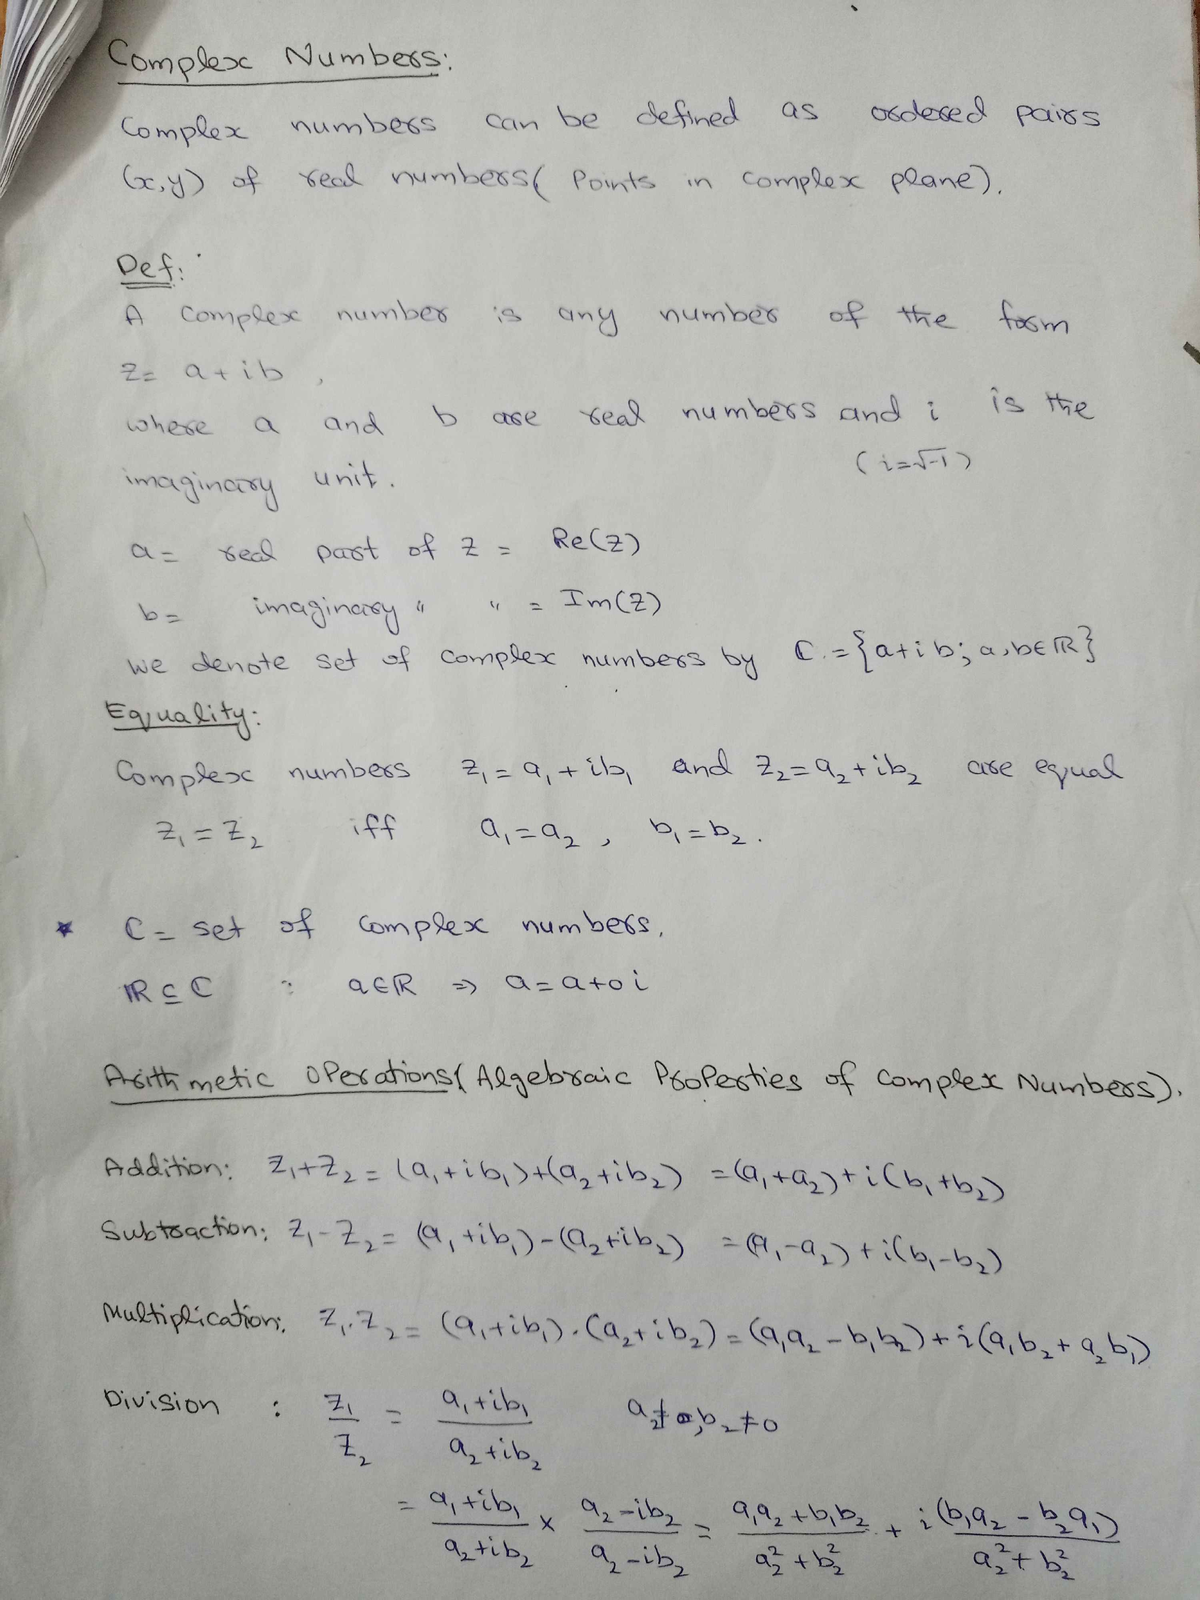 Complex Numbers:
Complex numbers can be defined as ordered pairs
(x,y) of real numbers( Points in complex plane).
Def:
A complex number is any number of the form
z= a+ib ,
where a and b are real numbers and i is the
imaginary unit. (i=√-1)
a= real part of z = Re(z)
b= imaginary " " = Im(z)
we denote set of complex numbers by ℂ.={a+ib; a,b∈ℝ}
Equality:
Complex numbers z₁=a₁+ib₁ and z₂=a₂+ib₂ are equal
z₁=z₂ iff a₁=a₂ , b₁=b₂.
* C= set of complex numbers.
ℝ⊆ℂ : a∈ℝ ⇒ a=a+0i
Arithmetic Operations(Algebraic Properties of Complex Numbers).
Addition: z₁+z₂=(a₁+ib₁)+(a₂+ib₂) =(a₁+a₂)+i(b₁+b₂)
Subtraction: z₁-z₂= (a₁+ib₁)-(a₂+ib₂) =(a₁-a₂)+i(b₁-b₂)
Multiplication: z₁.z₂= (a₁+ib₁).(a₂+ib₂)=(a₁a₂-b₁b₂)+i(a₁b₂+a₂b₁)
Division : z₁/z₂ = (a₁+ib₁)/(a₂+ib₂) a₂≠0,b₂≠0
= (a₁+ib₁)/(a₂+ib₂) × (a₂-ib₂)/(a₂-ib₂) = (a₁a₂+b₁b₂)/(a₂²+b₂²) + i(b₁a₂-b₂a₁)/(a₂²+b₂²)